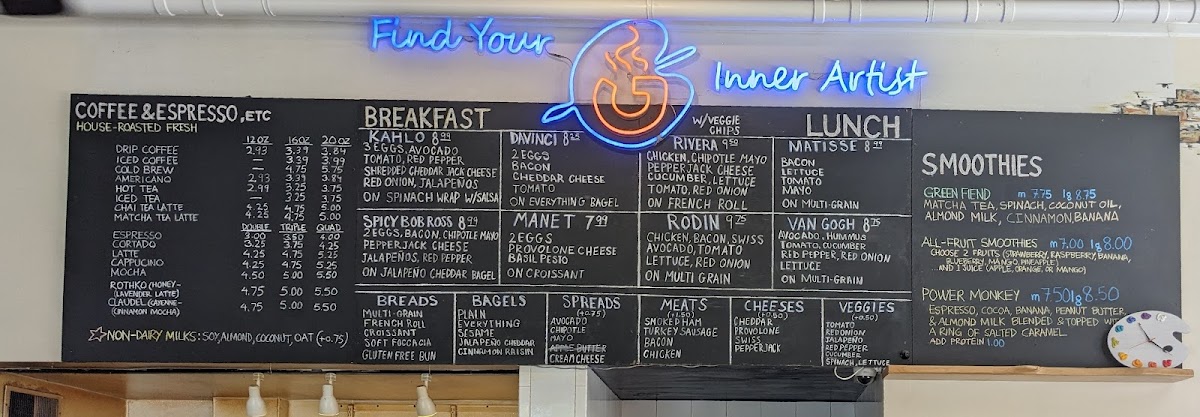 Find Your
G
Inner Artist
COFFEE & ESPRESSO, ETC
HOUSE-ROASTED FRESH
12OZ 16OZ 20OZ
DRIP COFFEE 2.93 3.39 3.84
ICED COFFEE — 3.39 3.99
COLD BREW — 4.75 5.75
AMERICANO 2.93 3.39 3.84
HOT TEA 2.99 3.25 3.75
ICED TEA — 3.25 3.75
CHAI TEA LATTE 4.25 4.75 5.00
MATCHA TEA LATTE 4.25 4.75 5.00
DOUBLE TRIPLE QUAD
ESPRESSO 3.00 3.50 4.00
CORTADO 3.25 3.75 4.25
LATTE 4.25 4.75 5.25
CAPPUCINO 4.25 4.75 5.25
MOCHA 4.50 5.00 5.50
ROTHKO (HONEY-
(LAVENDER LATTE) 4.75 5.00 5.50
CLAUDEL (CAYENNE-
(CINNAMON MOCHA) 4.75 5.00 5.50
NON-DAIRY MILKS: SOY, ALMOND, COCONUT, OAT (+0.75)
BREAKFAST
KAHLO 8.99
3 EGGS, AVOCADO
TOMATO, RED PEPPER
SHREDDED CHEDDAR JACK CHEESE
RED ONION, JALAPEÑOS
ON SPINACH WRAP W/SALSA
DAVINCI 8.25
2 EGGS
BACON
CHEDDAR CHEESE
TOMATO
ON EVERYTHING BAGEL
SPICY BOB ROSS 8.99
2 EGGS, BACON, CHIPOTLE MAYO
PEPPERJACK CHEESE
JALAPEÑOS, RED PEPPER
ON JALAPEÑO CHEDDAR BAGEL
MANET 7.99
2 EGGS
PROVOLONE CHEESE
BASIL PESTO
ON CROISSANT
W/VEGGIE
CHIPS
LUNCH
RIVERA 9.50
CHICKEN, CHIPOTLE MAYO
PEPPERJACK CHEESE
CUCUMBER, LETTUCE
TOMATO, RED ONION
ON FRENCH ROLL
MATISSE 8.99
BACON
LETTUCE
TOMATO
MAYO
ON MULTI-GRAIN
RODIN 9.75
CHICKEN, BACON, SWISS
AVOCADO, TOMATO
LETTUCE, RED ONION
ON MULTI GRAIN
VAN GOGH 8.75
AVOCADO, HUMMUS
TOMATO, CUCUMBER
RED PEPPER, RED ONION
LETTUCE
ON MULTI-GRAIN
BREADS
MULTI-GRAIN
FRENCH ROLL
CROISSANT
SOFT FOCCACIA
GLUTEN FREE BUN
BAGELS
PLAIN
EVERYTHING
SESAME
JALAPEÑO CHEDDAR
CINNAMON RAISIN
SPREADS
(+0.75)
AVOCADO
CHIPOTLE
MAYO
APPLE BUTTER
CREAM CHEESE
MEATS
(+1.50)
SMOKED HAM
TURKEY SAUSAGE
BACON
CHICKEN
CHEESES
(+0.50)
CHEDDAR
PROVOLONE
SWISS
PEPPERJACK
VEGGIES
(+0.50)
TOMATO
RED ONION
JALAPEÑO
RED PEPPER
CUCUMBER
SPINACH, LETTUCE
SMOOTHIES
GREEN FIEND m 7.75 lg 8.75
MATCHA TEA, SPINACH, COCONUT OIL,
ALMOND MILK, CINNAMON, BANANA
ALL-FRUIT SMOOTHIES m 7.00 lg 8.00
CHOOSE 2 FRUITS (STRAWBERRY, RASPBERRY, BANANA,
BLUEBERRY, MANGO, PINEAPPLE)
...AND 1 JUICE (APPLE, ORANGE, OR MANGO)
POWER MONKEY m 7.50 lg 8.50
ESPRESSO, COCOA, BANANA, PEANUT BUTTER,
& ALMOND MILK BLENDED & TOPPED WITH
A RING OF SALTED CARAMEL
ADD PROTEIN 1.00